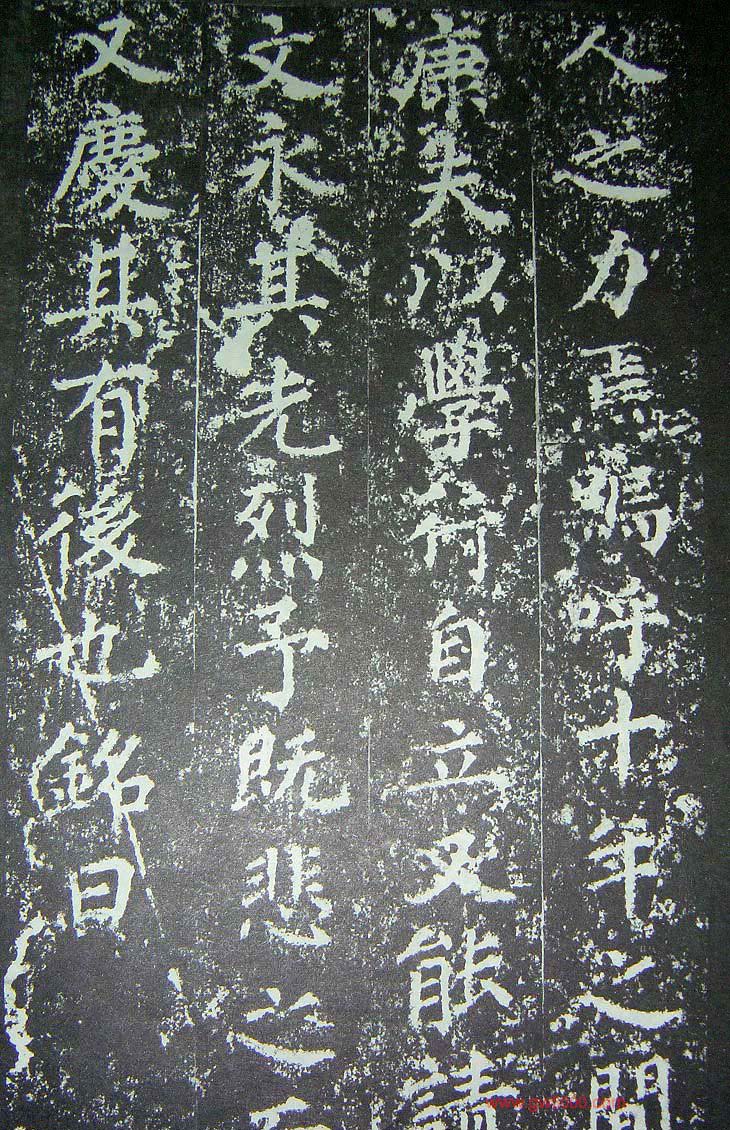 人之力焉嗚呼十年之間
康夫以學行自立又能請
文永其先烈予既悲之而
又慶其有後也銘曰